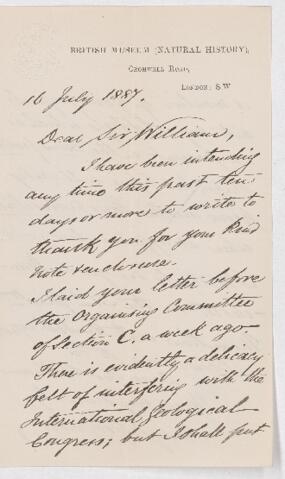 BRITISH MUSEUM (NATURAL HISTORY),
CROMWELL ROAD,
LONDON: S.W
16 July 1887.
Dear Sir William,
I have been intending
any time this past ten
days or more to write to
thank you for your kind
note & enclosure.
I laid your letter before
the Organising Committee
of Section C. a week ago.
There is evidently a delicacy
felt of interfering with the
International Geological
Congress; but I shall put